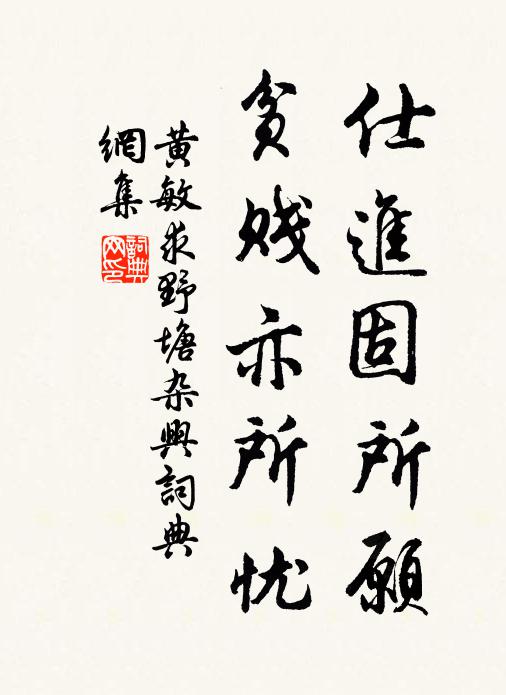 仕進固所願
貧賤亦所忧
黄敏求野塘杂興詞典
網集
詞典
网印